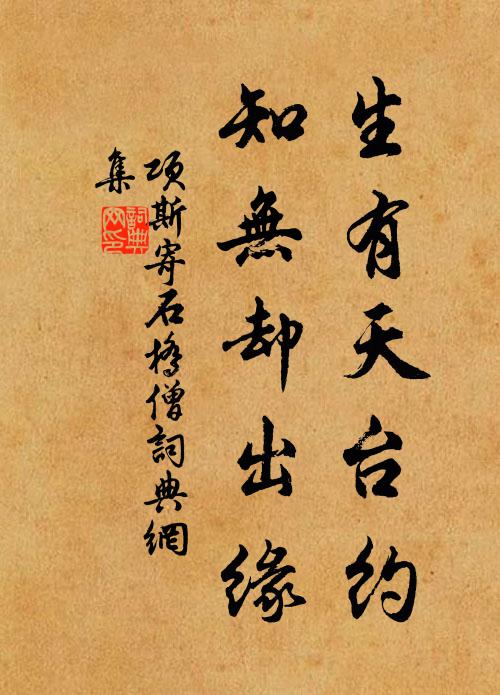 生有天台約
知無却出緣
項斯寄石橋僧詞典網
集
詞典
网印